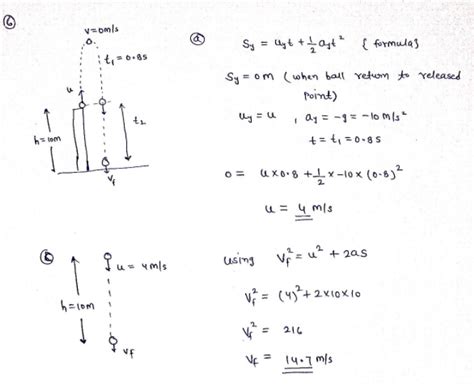 ⑥
v=0m/s
t₁ = 0.8s
u
h=10m
t₂
Vf
ⓐ
Sy = uyt + 1/2 ayt² { formula}
Sy = 0m ( when ball return to released
point)
uy = u , ay = -g = -10 m/s²
t = t₁ = 0.8s
0 = u x 0.8 + 1/2 x -10 x (0.8)²
u = 4 m/s
u = 4m/s
h=10m
Vf
using Vf² = u² + 2as
Vf² = (4)² + 2x10x10
Vf² = 216
Vf = 14.7 m/s